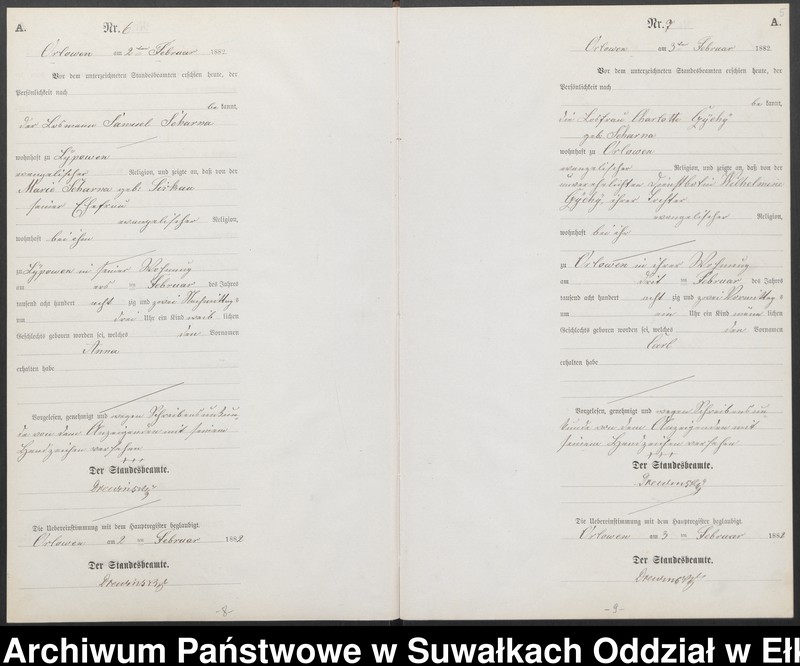 A.
Nr. 6
Orlowen am 2ten Februar 1882.
Vor dem unterzeichneten Standesbeamten erschien heute, der
Persönlichkeit nach
be kannt,
der Losmann Samuel Scharna
wohnhaft zu Lypowen
evangelischer Religion, und zeigte an, daß von der
Marie Scharna geb.
seiner Ehefrau
evangelischer Religion,
wohnhaft bei ihm
zu Lypowen in seiner Wohnung
am ersten Februar des Jahres
tausend acht hundert acht zig und zwei Nachmittag s
um drei Uhr ein Kind weib lichen
Geschlechts geboren worden sei, welches den Vornamen
Anna
erhalten habe
Vorgelesen, genehmigt und wegen Schreibensunkun
de von dem Anzeigenden mit seinem
Handzeichen versehen
+++
Der Standesbeamte.
Die Uebereinstimmung mit dem Hauptregister beglaubigt.
Orlowen am 2 ten Februar 1882
Der Standesbeamte.
-8-
5
Nr. 7
A.
Orlowen am 3ten Februar 1882.
Vor dem unterzeichneten Standesbeamten erschien heute, der
Persönlichkeit nach
be kannt,
die Losfrau Charlotte
geb. Scharna
wohnhaft zu Orlowen
evangelischer Religion, und zeigte an, daß von der
unverehelichten Dienstbotin Wilhelmine
ihrer Tochter
evangelischer Religion,
wohnhaft bei ihr
zu Orlowen in ihrer Wohnung
am drit ten Februar des Jahres
tausend acht hundert acht zig und zwei Vormittag s
um ein Uhr ein Kind männ lichen
Geschlechts geboren worden sei, welches den Vornamen
Carl
erhalten habe
Vorgelesen, genehmigt und wegen Schreibensun
kunde von dem Anzeigenden mit
seinem Handzeichen versehen
+++
Der Standesbeamte.
Die Uebereinstimmung mit dem Hauptregister beglaubigt.
Orlowen am 3 ten Februar 1882
Der Standesbeamte.
-9-
Archiwum Państwowe w Suwałkach Oddział w Eł